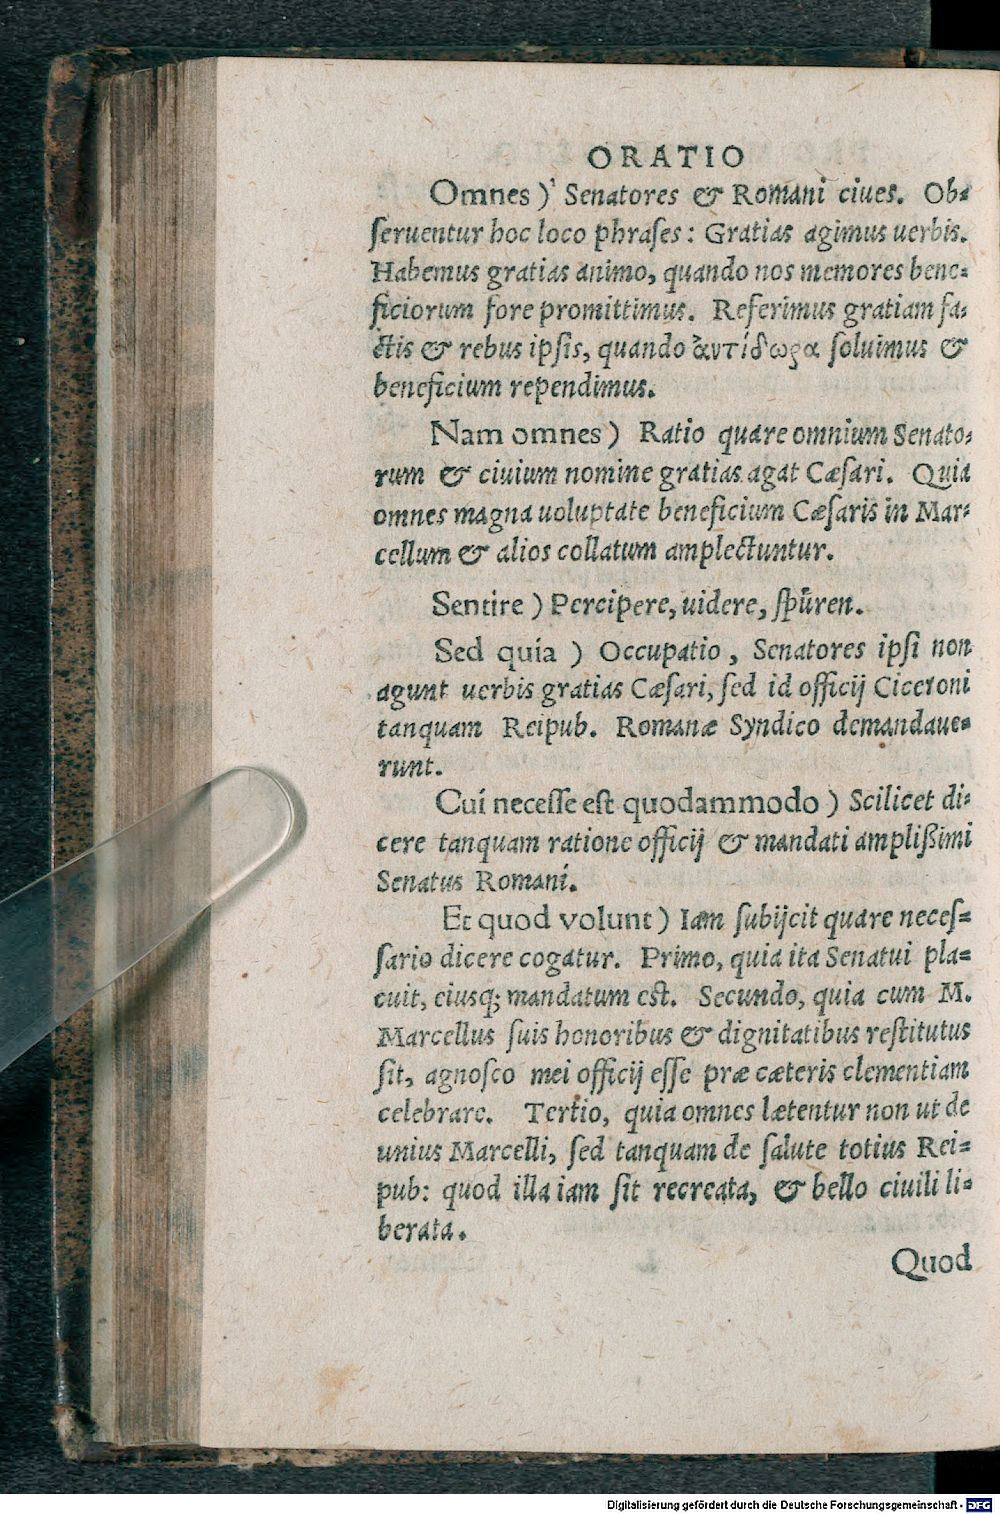 ORATIO
Omnes) Senatores & Romani ciues. Ob-
ſeruentur hoc loco phraſes: Gratias agimus uerbis.
Habemus gratias animo, quando nos memores bene-
ficiorum fore promittimus. Referimus gratiam fa-
ctis & rebus ipſis, quando ἀντίδωρα ſoluimus &
beneficium rependimus.
Nam omnes) Ratio quare omnium Senato-
rum & ciuium nomine gratias agat Cæſari. Quia
omnes magna uoluptate beneficium Cæſaris in Mar-
cellum & alios collatum amplectuntur.
Sentire) Percipere, uidere, ſpüren.
Sed quía) Occupatio, Senatores ipſi non
agunt uerbis gratias Cæſari, ſed id officij Ciceroni
tanquam Reipub. Romanæ Syndico demandaue-
runt.
Cuí neceſſe eſt quodammodo) Scilicet di-
cere tanquam ratione officij & mandati ampliſſimi
Senatus Romaní.
Et quod volunt) Iam ſubijcit quare neceſ-
ſario dicere cogatur. Primo, quia ita Senatui pla-
cuit, eiusq; mandatum eſt. Secundo, quia cum M.
Marcellus ſuis honoribus & dignitatibus reſtitutus
ſit, agnoſco mei officij eſſe præ cæteris clementiam
celebrare. Tertio, quia omnes lætentur non ut de
unius Marcelli, ſed tanquam de ſalute totius Rei-
pub: quod illa iam ſit recreata, & bello ciuili li-
berata.
Quod
Digitalisierung gefördert durch die Deutsche Forschungsgemeinschaft - DFG